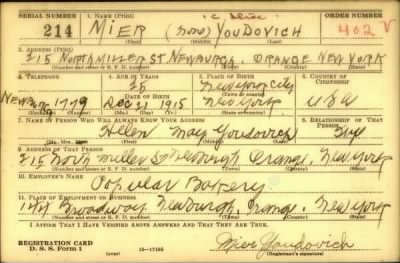 SERIAL NUMBER 1. NAME (Print) ORDER NUMBER
214 MIER (NONE) YOUDOVICH 402 V
(First) (Middle) (Last)
2. ADDRESS (Print)
215 NORTH MILLER ST NEWBURGH, ORANGE NEW YORK
(Number and street or R. F. D. number) (Town) (County) (State)
3. TELEPHONE 4. AGE IN YEARS 5. PLACE OF BIRTH 6. COUNTRY OF CITIZENSHIP
25 New York City
DATE OF BIRTH (Town or county)
1779 Dec 21 1915 New York USA
(Exchange) (No.) (Mo.) (Day) (Yr.) (State or country)
7. NAME OF PERSON WHO WILL ALWAYS KNOW YOUR ADDRESS 8. RELATIONSHIP OF THAT PERSON
Helen May Youdovich
(Mr., Mrs., Miss) (First) (Middle) (Last)
9. ADDRESS OF THAT PERSON
215 North Miller St Newburgh Orange, New York
(Number and street or R. F. D. number) (Town) (County) (State)
10. EMPLOYER'S NAME
Popular Bakery
11. PLACE OF EMPLOYMENT OR BUSINESS
Broadway Newburgh, Orange, New York
(Number and street or R. F. D. number) (Town) (County) (State)
I AFFIRM THAT I HAVE VERIFIED ABOVE ANSWERS AND THAT THEY ARE TRUE.
REGISTRATION CARD
D. S. S. Form 1 (over) 16—17105 Mier Youdovich
(Registrant's signature)